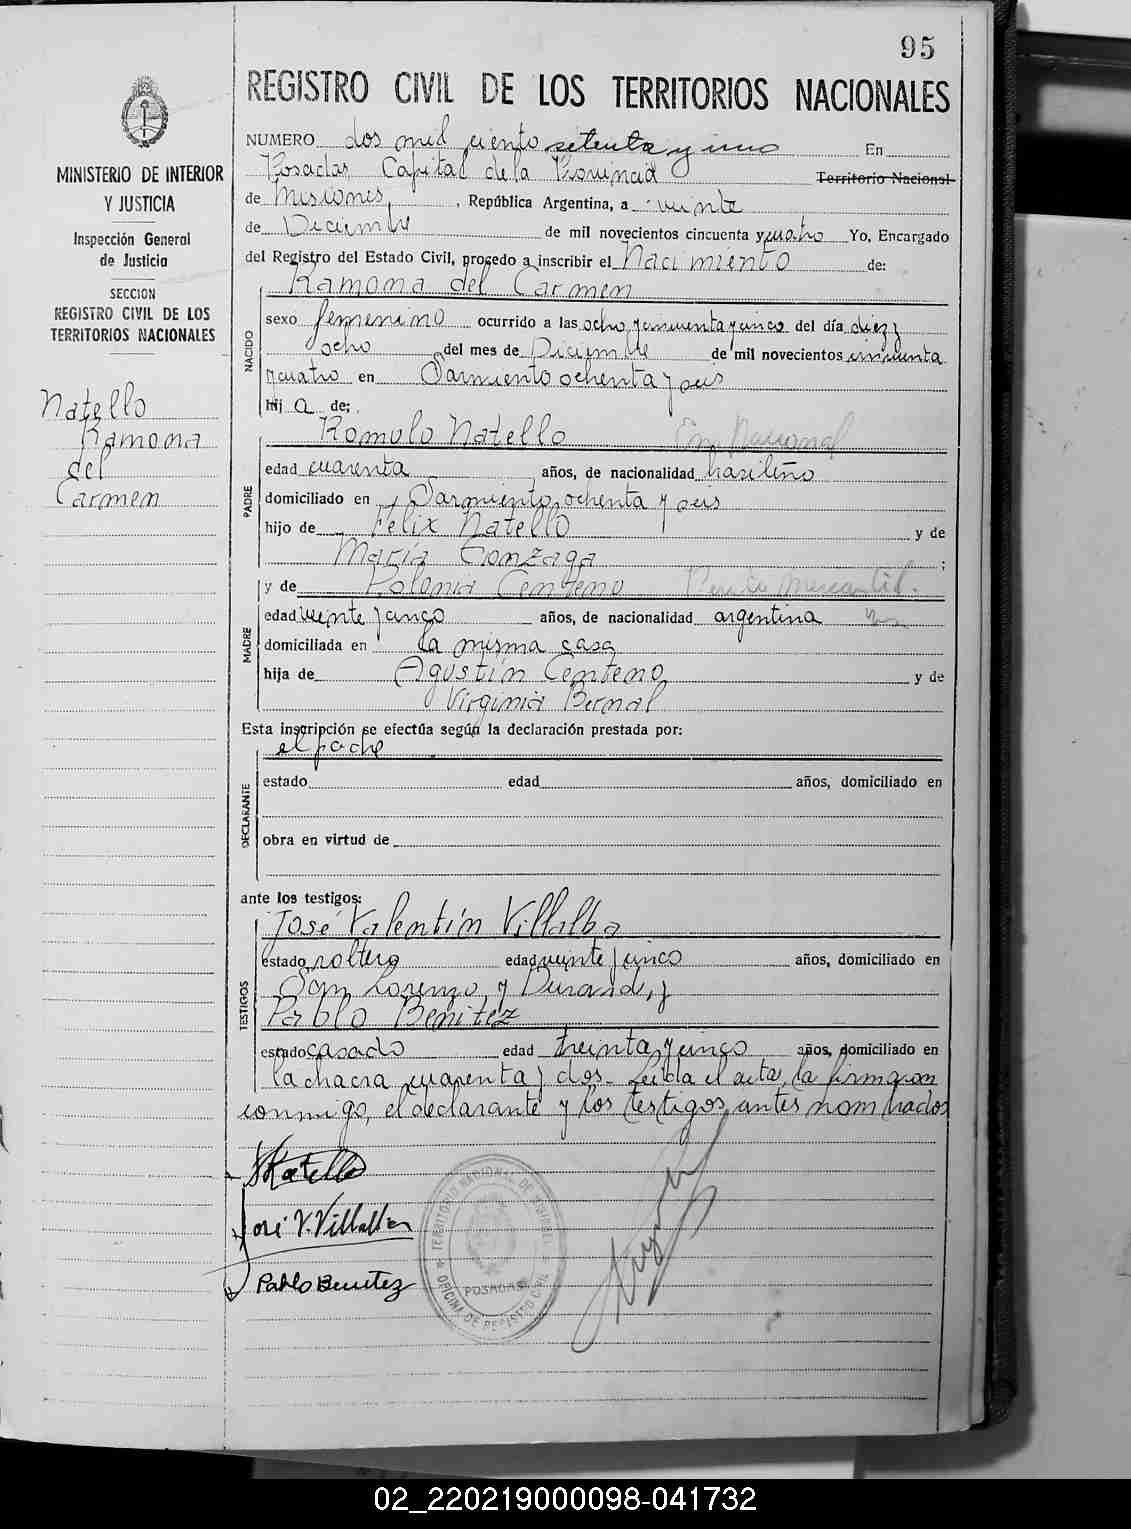 95
REGISTRO CIVIL DE LOS TERRITORIOS NACIONALES
MINISTERIO DE INTERIOR
Y JUSTICIA
Inspección General
de Justicia
SECCION
REGISTRO CIVIL DE LOS
TERRITORIOS NACIONALES
Natello
Ramona
del
Carmen
NUMERO dos mil ciento setenta y uno En
Posadas Capital de la Provincia Territorio Nacional
de Misiones, República Argentina, a veinte
de Diciembre de mil novecientos cincuenta y cuatro Yo, Encargado
del Registro del Estado Civil, procedo a inscribir el Nacimiento de:
NACIDO
Ramona del Carmen
sexo femenino ocurrido a las ocho y cincuenta y cinco del día diez y
ocho del mes de Diciembre de mil novecientos cincuenta
y cuatro en Sarmiento ochenta y seis
hij a de:
PADRE
Romulo Natello Em Nacional
edad cuarenta años, de nacionalidad brasileño
domiciliado en Sarmiento ochenta y seis
hijo de Félix Natello y de
María Gonzaga ;
MADRE
y de Polonia Centeno Perito Mercantil.
edad veinte y cinco años, de nacionalidad argentina
domiciliada en la misma casa
hija de Agustín Centeno y de
Virginia Bernal
Esta inscripción se efectúa según la declaración prestada por:
DECLARANTE
el padre
estado edad años, domiciliado en
obra en virtud de
ante los testigos:
TESTIGOS
José Valentín Villalba
estado soltero edad veinte y cinco años, domiciliado en
San Lorenzo y Durand, y
Pablo Benitez
estado casado edad treinta y cinco años, domiciliado en
la chacra cuarenta y dos. Leída el acta, la firmaron
conmigo, el declarante y los testigos antes nombrados
RNatello
José V. Villalba
Pablo Benitez
OFICINA DE REGISTRO CIVIL
POSADAS
02_220219000098-041732